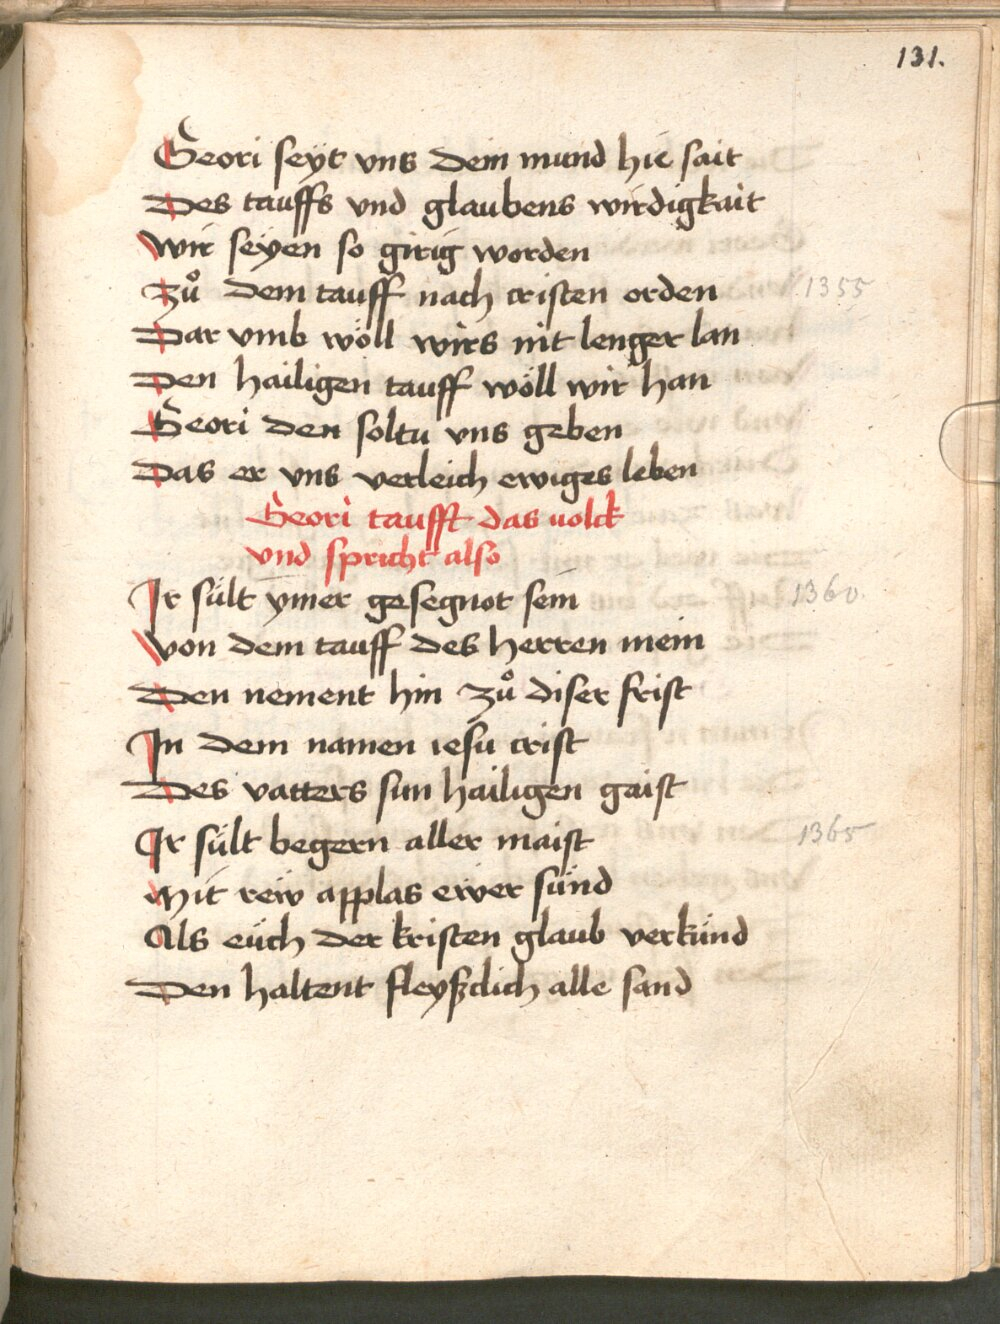 131.
Geori seyt vns dein mund hie sait
Des tauffs vnd glaubens wirdigkait
Wir seyen so girig worden
Zů dem tauff nach cristen orden 1355
Dar vmb wöll wirs nit lenger lan
Den hailigen tauff wöll wir han
Geori den soltu vns geben
Das er vns verleich ewiges leben
Geori taufft das uolck
vnd spricht also
Ir sült ym̄er gesegnot sein 1360.
Von dem tauff des herren mein
Den nement hin zů diser frist
In dem namen iesu crist
Des vatters sun hailigen gaist
Ir sült begern aller maist 1365
Mit rew applas ewer sünd
Als eüch der kristen glaub verkünd
Den haltent fleyßclich alle sand